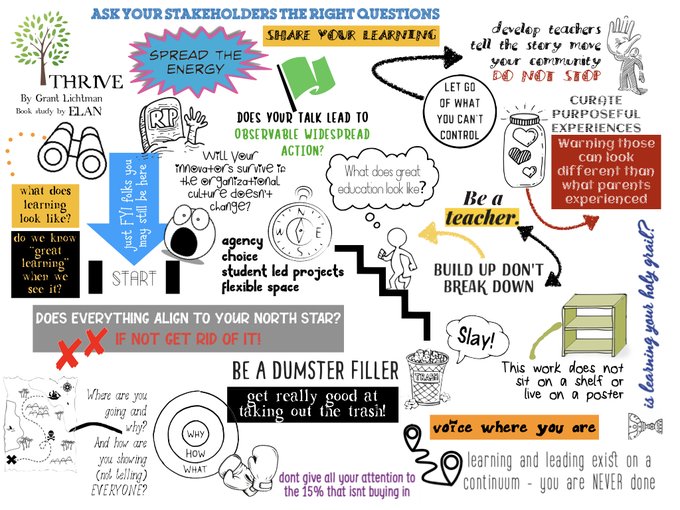 ASK YOUR STAKEHOLDERS THE RIGHT QUESTIONS
THRIVE
By Grant Lichtman
Book study by ELAN
SPREAD THE
ENERGY
SHARE YOUR LEARNING
develop teachers
tell the story move
your community
DO NOT STOP
LET GO
OF WHAT
YOU CAN'T
CONTROL
CURATE
PURPOSEFUL
EXPERIENCES
Warning those
can look
different than
what parents
experienced
RIP
DOES YOUR TALK LEAD TO
OBSERVABLE WIDESPREAD
ACTION?
Will your
innovator's survive if
the organizational
culture doesn't
change?
What does great
education look like?
what does
learning
look like?
just FYI folks you
may still be here
do we know
"great
learning"
when we
see it?
START
N
E
S
W
agency
choice
student led projects
flexible space
Be a
teacher.
BUILD UP DON'T
BREAK DOWN
is learning your holy grail?
DOES EVERYTHING ALIGN TO YOUR NORTH STAR?
IF NOT GET RID OF IT!
Slay!
This work does not
sit on a shelf or
live on a poster
BE A DUMSTER FILLER
get really good at
taking out the trash!
TRASH
Where are you
going and
why?
And how are
you showing
(not telling)
EVERYONE?
WHY
HOW
WHAT
voice where you are
learning and leading exist on a
continuum - you are NEVER done
dont give all your attention to
the 15% that isnt buying in